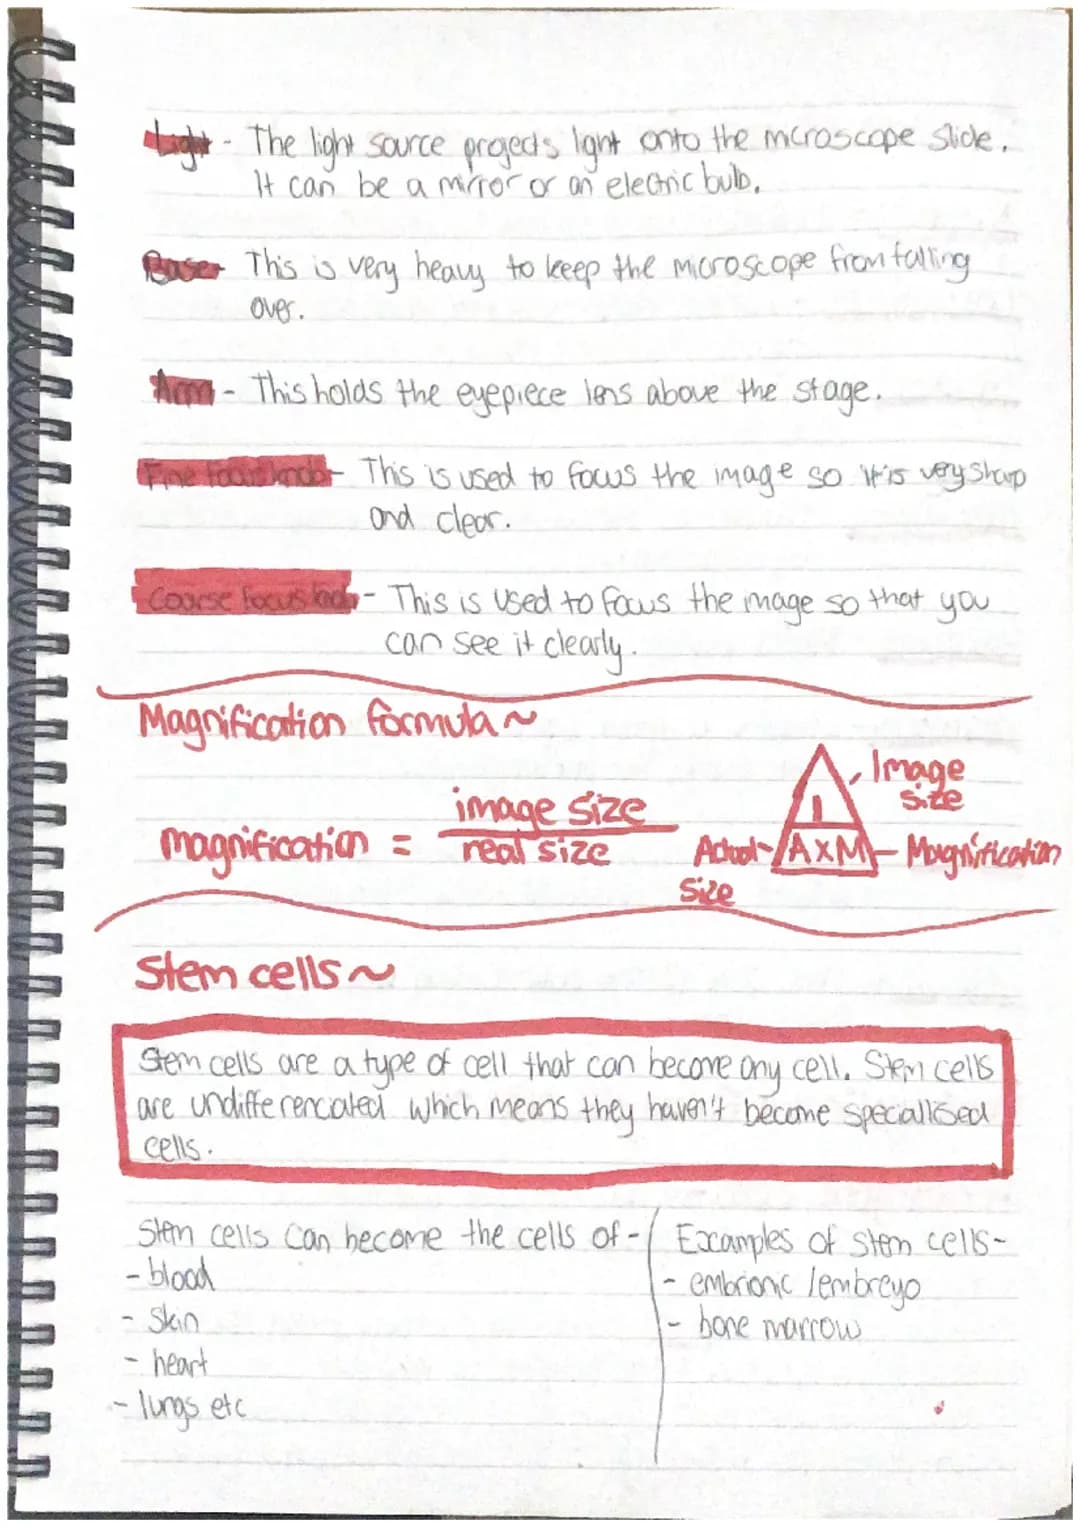 Light - The light source projects light onto the microscope slide.
It can be a mirror or an electric bulb.
Base - This is very heavy to keep the microscope from falling
over.
Arm - This holds the eyepiece lens above the stage.
Fine focus knob - This is used to focus the image so it is very sharp
and clear.
Coarse focus knob - This is used to focus the image so that you
can see it clearly.
Magnification formula ~
magnification = image size
real size
Image
size
I
Actual
size
A x M
Magnification
Stem cells ~
Stem cells are a type of cell that can become any cell. Stem cells
are undifferenciated which means they haven't become speciallised
cells.
Stem cells can become the cells of -
- blood
- skin
- heart
- lungs etc
Examples of stem cells -
- embrionic / embreyo
- bone marrow